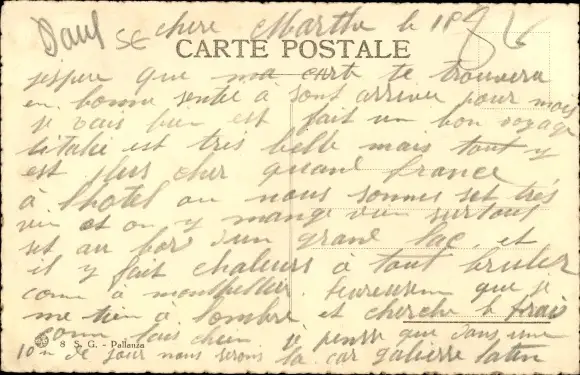 Paul
chere Marthe le 18
CARTE POSTALE
jespere que ma carte te trouvera
en bonne sentie à sont arriver pour moi
je vais bien est fait un bon voyage
litalie est tres belle mais tout y
est plus cher quand france
à lhotel ou nous sonnes set très
vien et on y mange vien surtout
set au bord dun grand lac et
il y fait chaleurs à tout bruler
come à montpellier. heureusem que je
me tien à lombre et cherche le frais
come les chien je pense que dans une
10 n de jour nous serons la car
8 S. G. - Pallanza